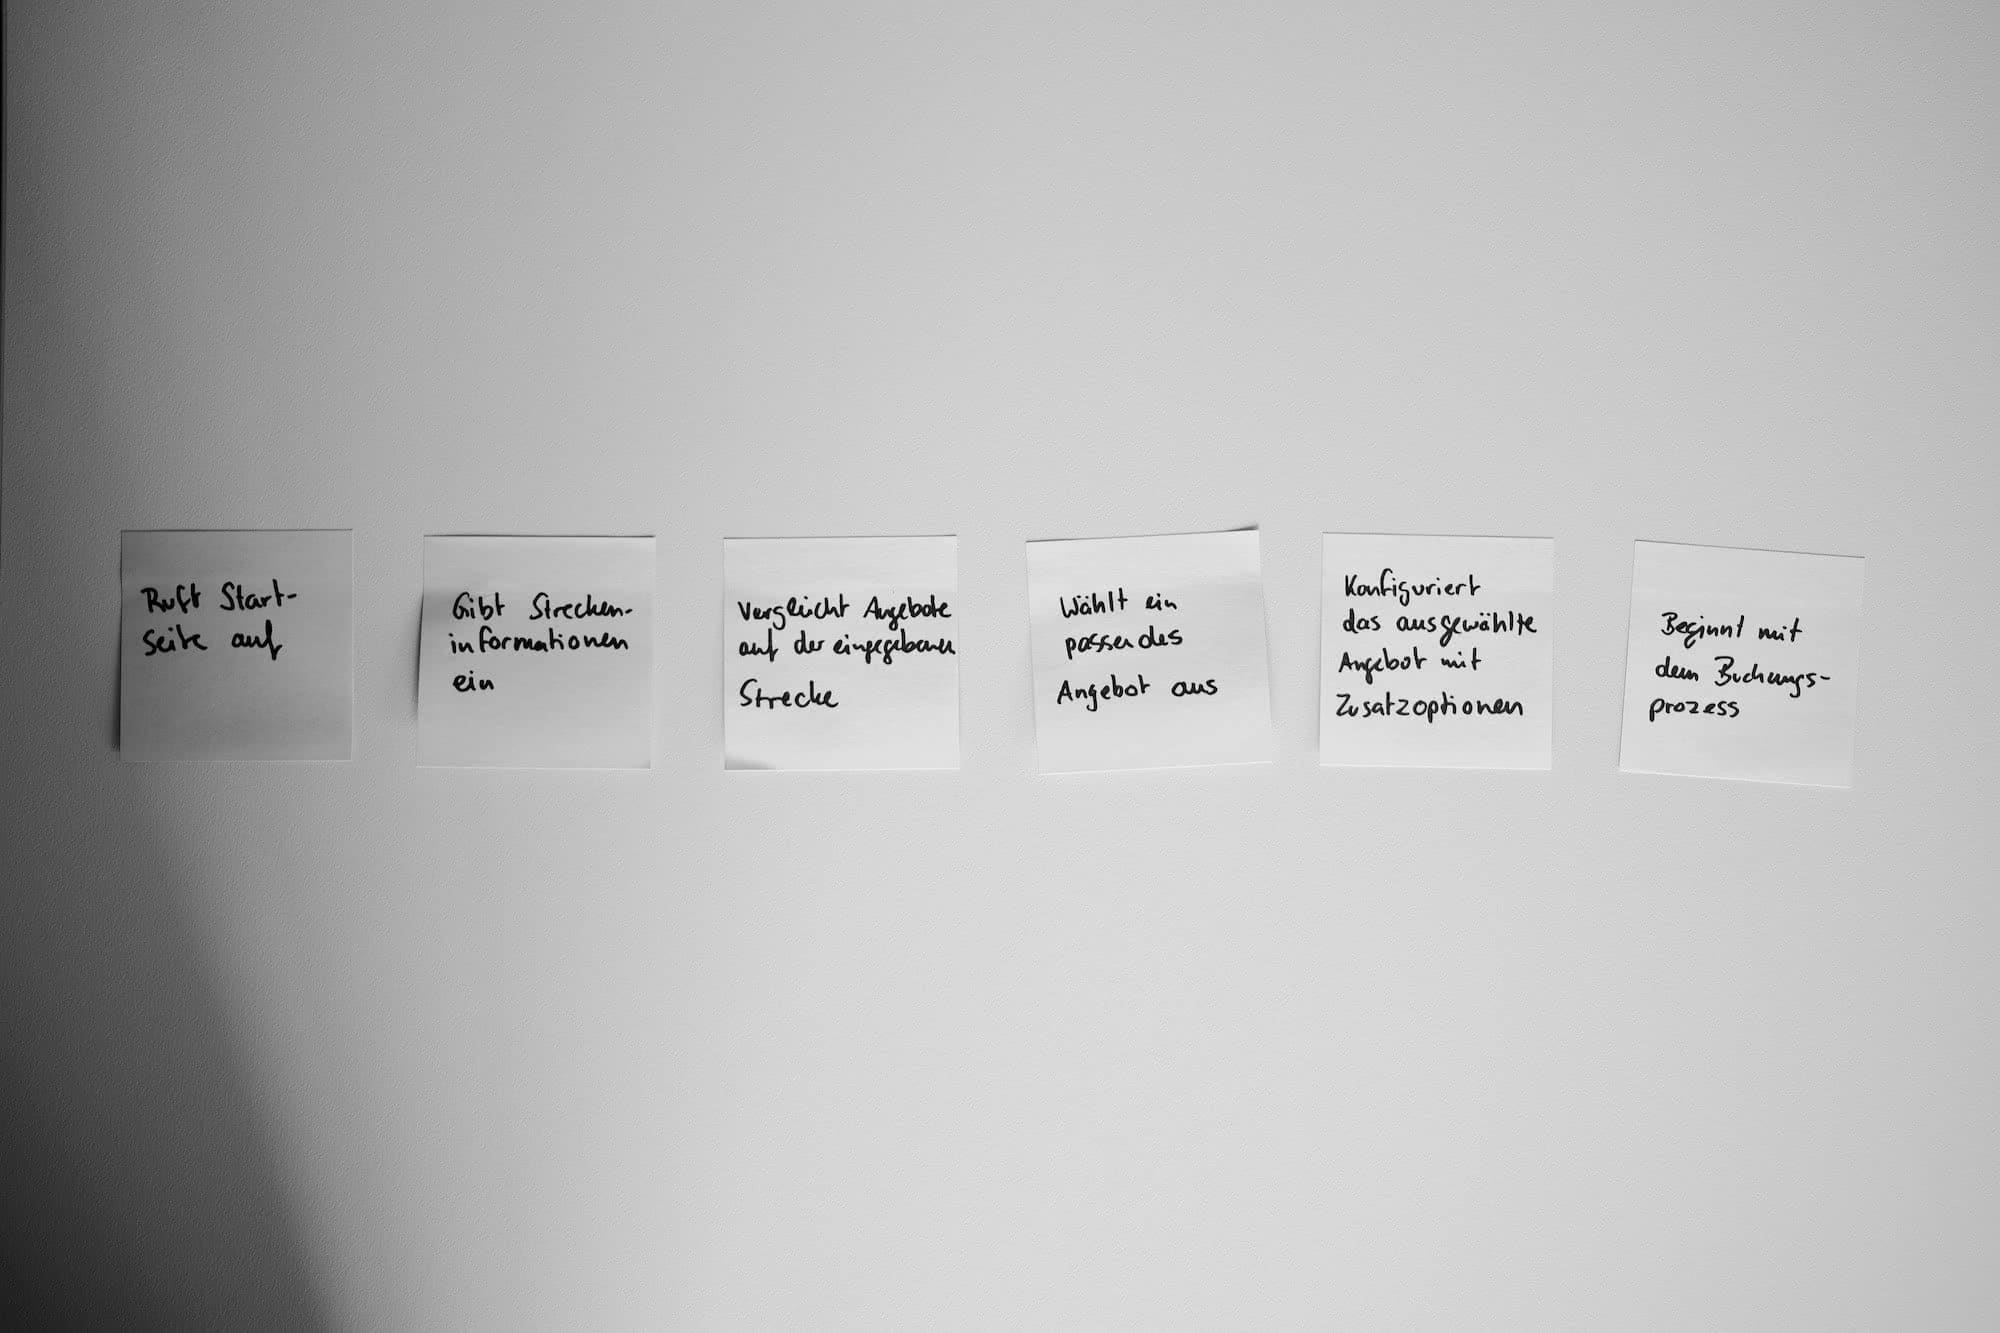 Ruft Start-
seite auf
Gibt Strecken-
informationen
ein
Vergleicht Angebote
auf der eingegebenen
Strecke
Wählt ein
passendes
Angebot aus
Konfiguriert
das ausgewählte
Angebot mit
Zusatzoptionen
Beginnt mit
dem Buchungs-
prozess